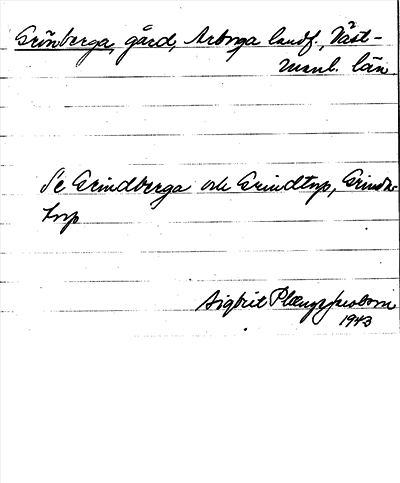 Grönberga, gård, Arboga landf., Väst-
manl. län.
Se Grindberga och Grindtorp, Grinds-
torp
Sigfrid
1943